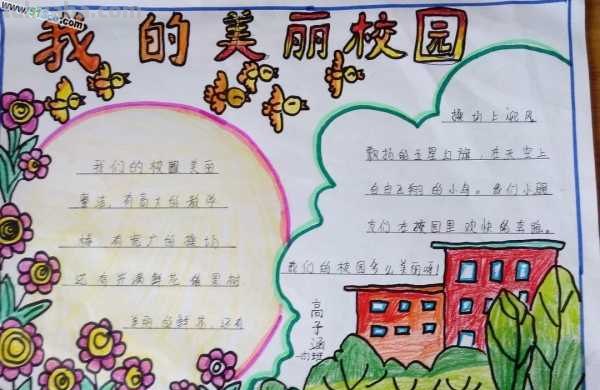 我的美丽校园
我们的校园美丽
整洁,有高大的教学
楼,有宽广的操场
还有开满鲜花
的鲜花,还有
操场上迎风
飘扬的五星红旗,在天空上
自由飞翔的小鸟。我们小朋
友们在校园里欢快的
我们的校园多么美丽呀!
高子涵
一 班